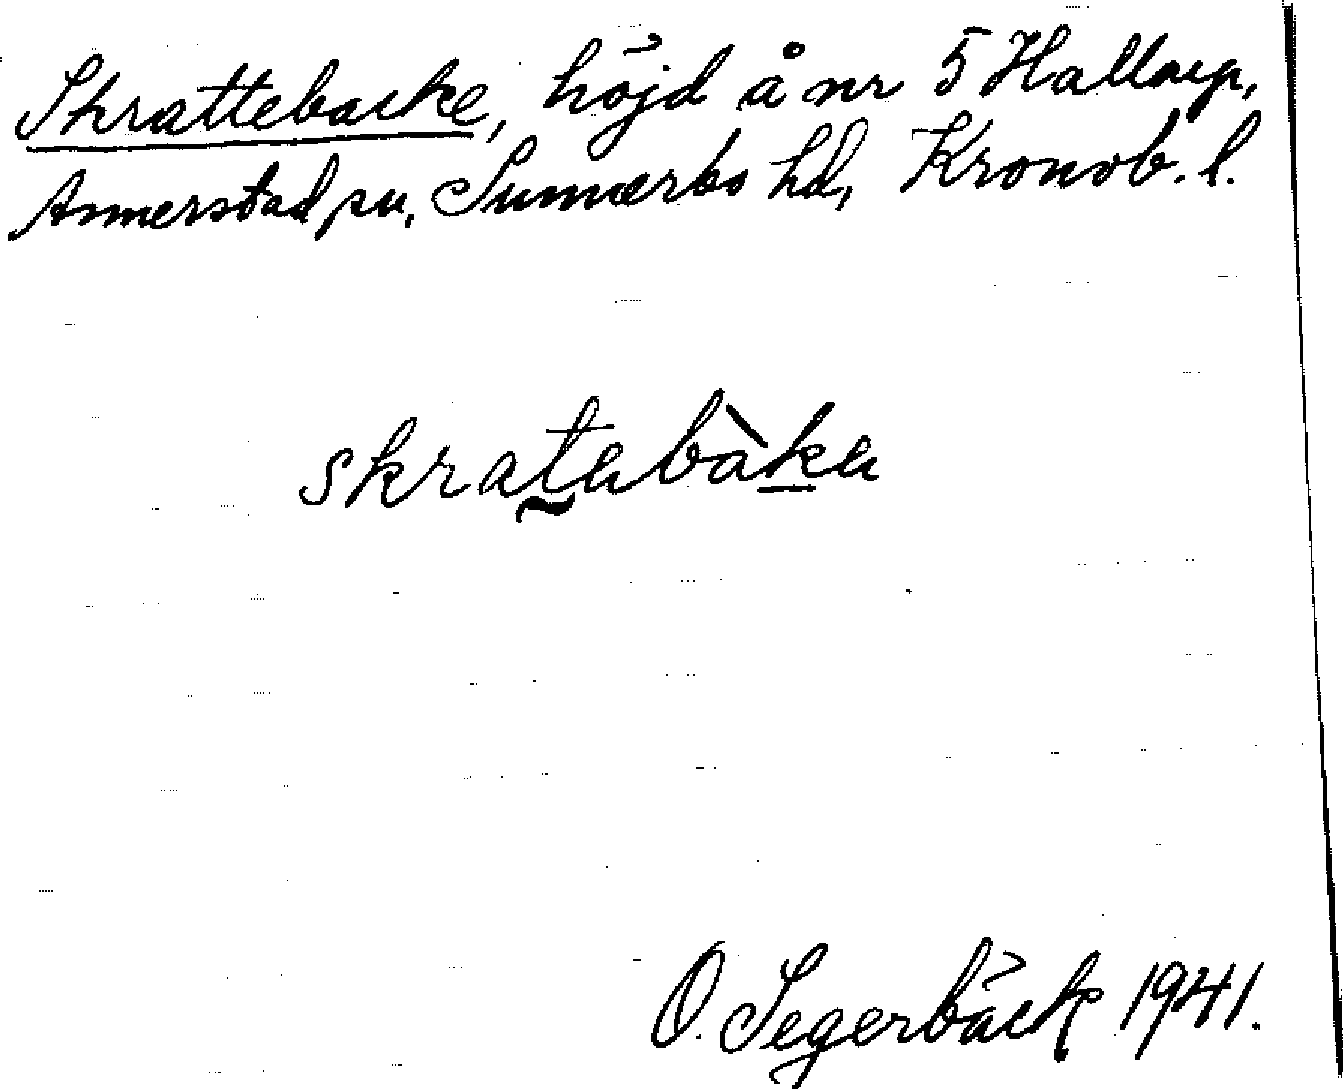 Skrattebacke, höjd å nr 5 Hallarp,
Annerstad sn, Sunnerbo hd, Kronob. l.
skratabàka
O. Segerbäck 1941.